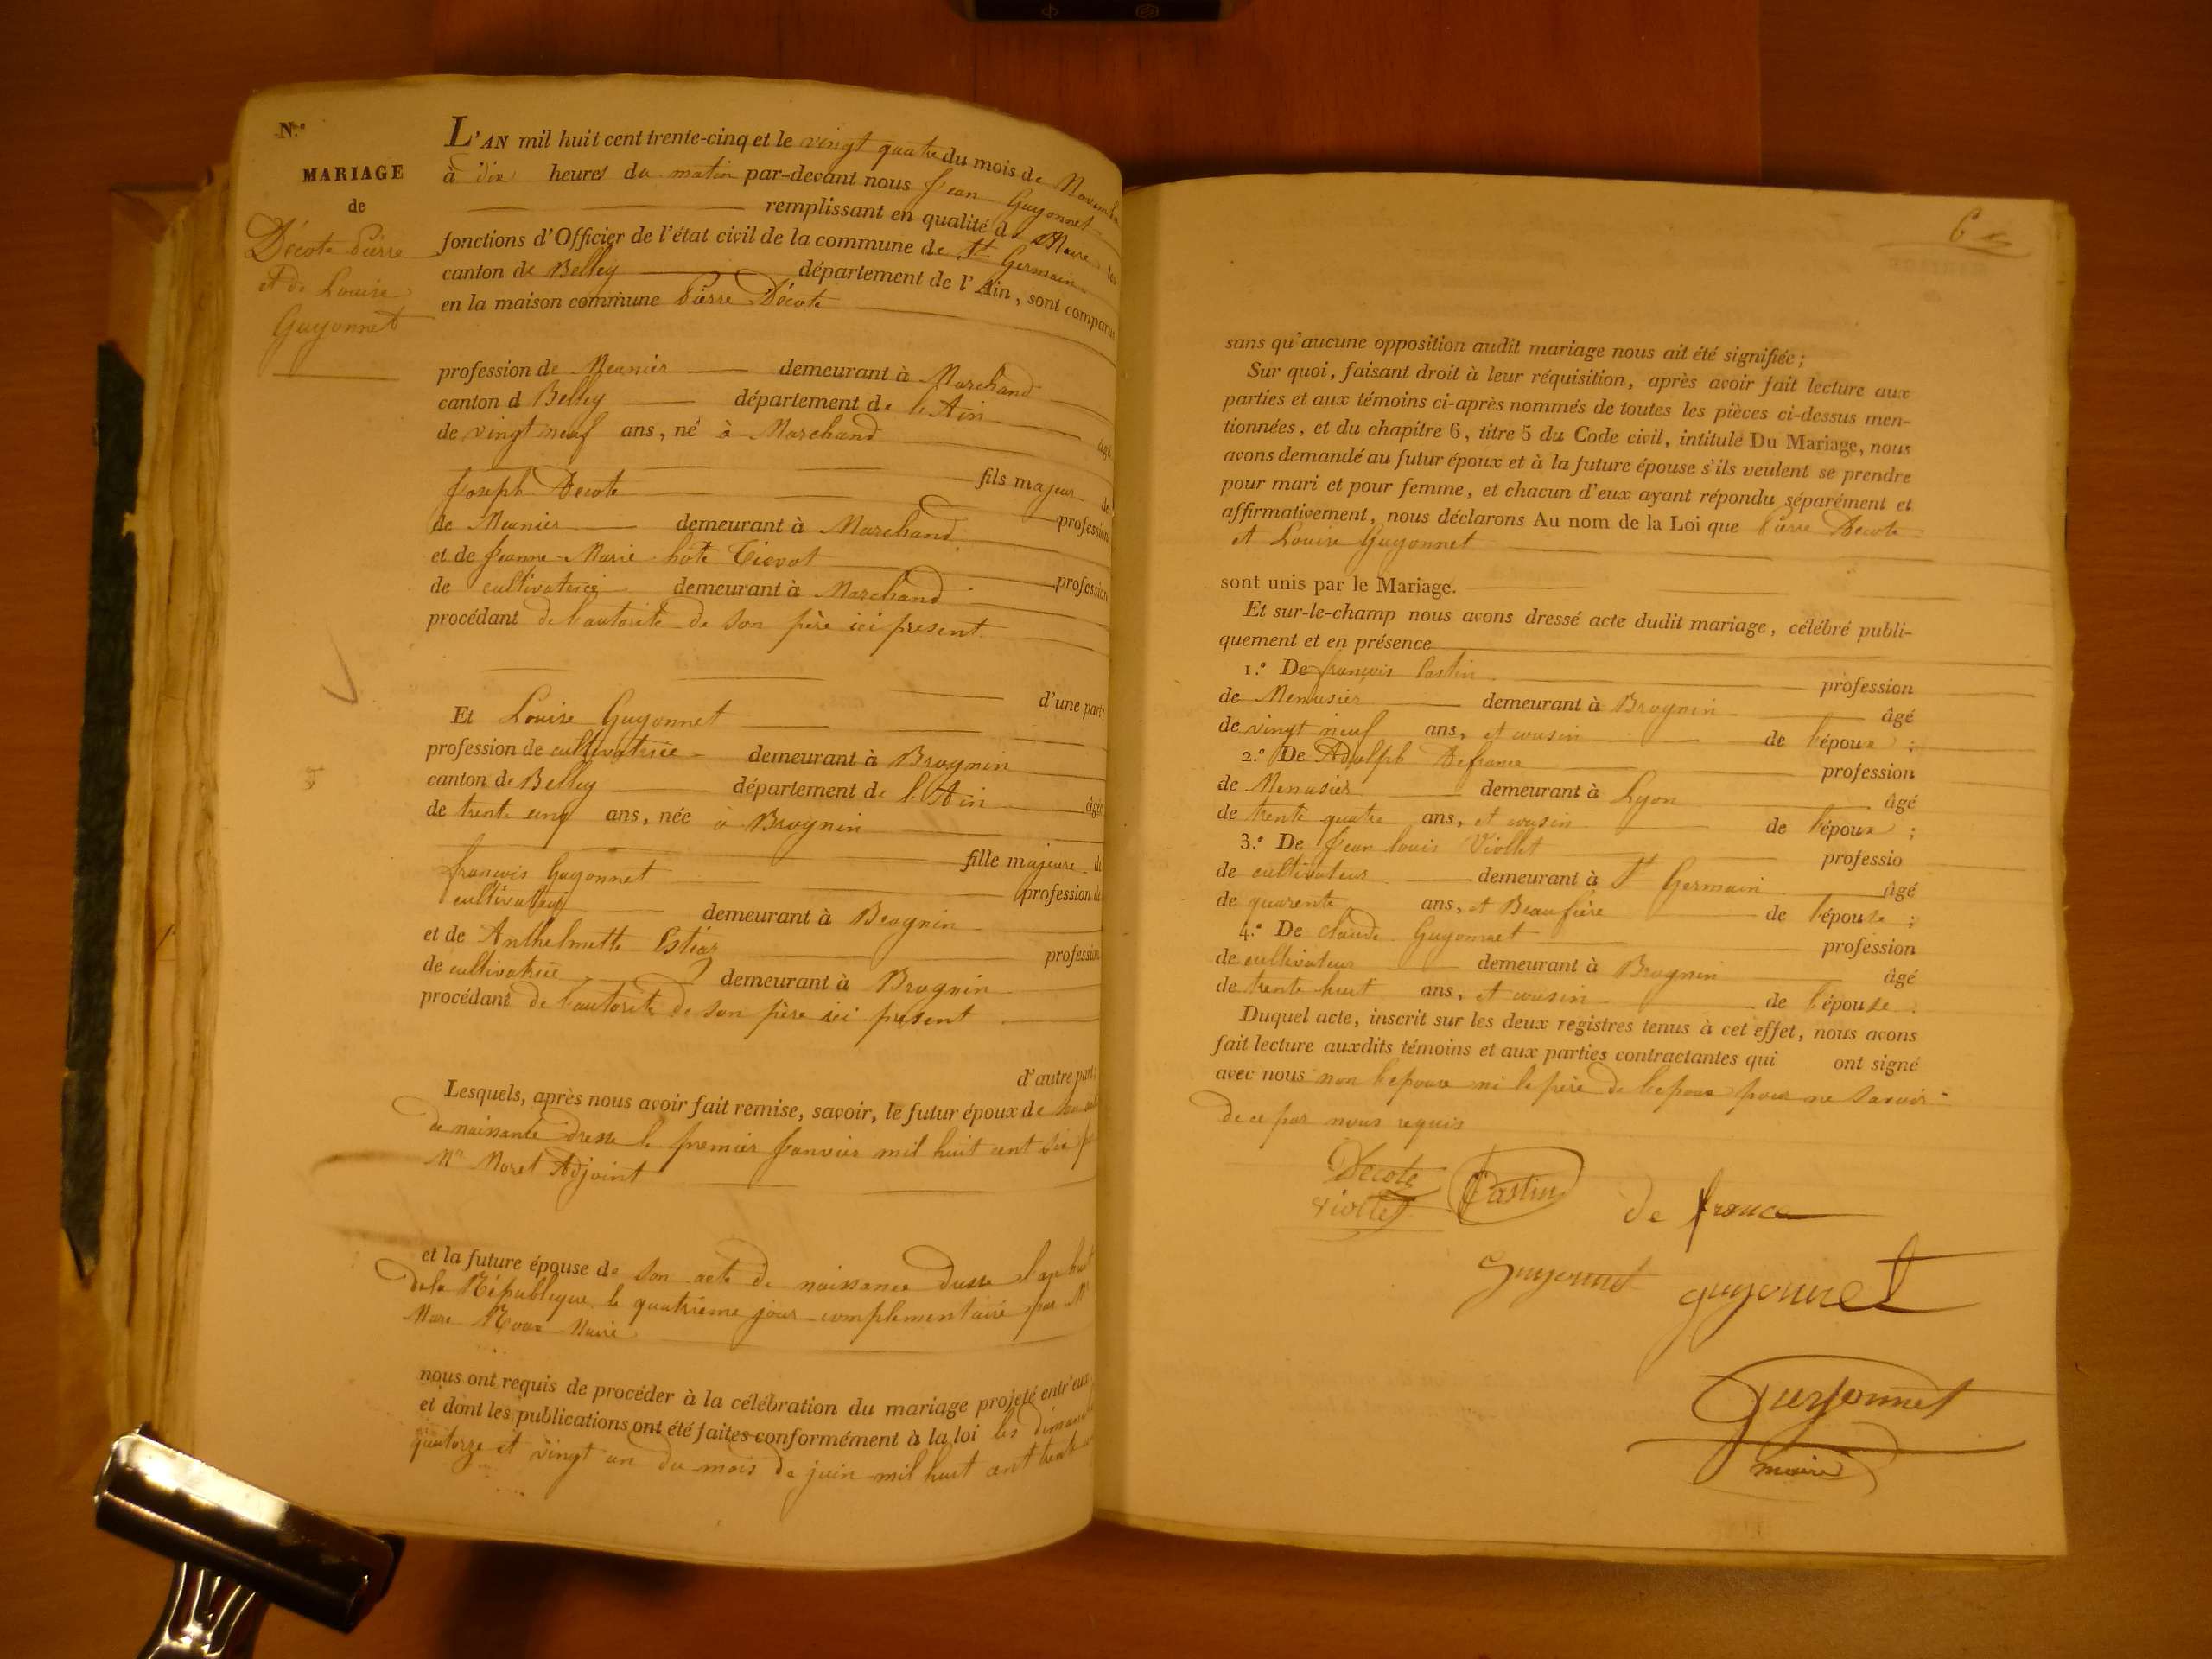 N.°
MARIAGE
de
Décote Pierre
et de Louise
Guyonnet
L'AN mil huit cent trente-cinq et le vingt quatre du mois de Novembre
à dix heures du matin par-devant nous Jean Guyonnet
remplissant en qualité de Maire les
fonctions d'Officier de l'état civil de la commune de St. Germain
canton de Belley département de l'Ain, sont comparus
en la maison commune Pierre Décote
profession de Meunier demeurant à Marchand
canton d Belley département de l'Ain
âgé
de vingt neuf ans, né à Marchand
fils majeur de
Joseph Decote
profession
de Meunier demeurant à Marchand
et de Jeanne-Marie hote
profession
de cultivatrice demeurant à Marchand
procédant de l'autorité de son père ici present
d'une part;
Et Louise Guyonnet
profession de cultivatrice demeurant à Brognin
canton de Belley département de l'Ain
âgée
de trente cinq ans, née à Brognin
fille majeure de
françois Guyonnet
profession de
cultivateur demeurant à Brognin
et de Anthelmette
profession
de cultivatrice demeurant à Brognin
procédant de l'autorité de son père ici present
d'autre part;
Lesquels, après nous avoir fait remise, savoir, le futur époux de son acte
de naissance dresse le premier Janvier mil huit cent six par
Mr Moret Adjoint
et la future épouse de son acte de naissance dresse l'an huit
dela République le quatrième jour complementaire par Mr
Marc Roux Maire
nous ont requis de procéder à la célébration du mariage projeté entr'eux
et dont les publications ont été faites conformément à la loi les dimanches
quatorze et vingt un du mois de juin mil huit cent trente
6
sans qu'aucune opposition audit mariage nous ait été signifiée;
Sur quoi, faisant droit à leur réquisition, après avoir fait lecture aux
parties et aux témoins ci-après nommés de toutes les pièces ci-dessus men-
tionnées, et du chapitre 6, titre 5 du Code civil, intitulé Du Mariage, nous
avons demandé au futur époux et à la future épouse s'ils veulent se prendre
pour mari et pour femme, et chacun d'eux ayant répondu séparément et
affirmativement, nous déclarons Au nom de la Loi que Pierre Decote
et Louise Guyonnet
sont unis par le Mariage.
Et sur-le-champ nous avons dressé acte dudit mariage, célébré publi-
quement et en présence
1.° De françois Castin profession
de Menusier demeurant à Brognin âgé
de vingt neuf ans, et cousin de l'époux;
2.° De Adolph Defrance profession
de Menusier demeurant à Lyon âgé
de trente quatre ans, et cousin de l'époux;
3.° De Jean louis Viollet professio
de cultivateur demeurant à St Germain âgé
de quarente ans, et Beau frère de l'épouse;
4.° De claude Guyonnet profession
de cultivateur demeurant à Brognin âgé
de trente huit ans, et cousin de l'épouse.
Duquel acte, inscrit sur les deux registres tenus à cet effet, nous avons
fait lecture auxdits témoins et aux parties contractantes qui ont signé
avec nous non l'epouse ni le père de l'epoux pour ne savoir
de ce par nous requis
Decote
Castin
de france
viollet
guyonnet
guyonnet
Guyonnet
maire